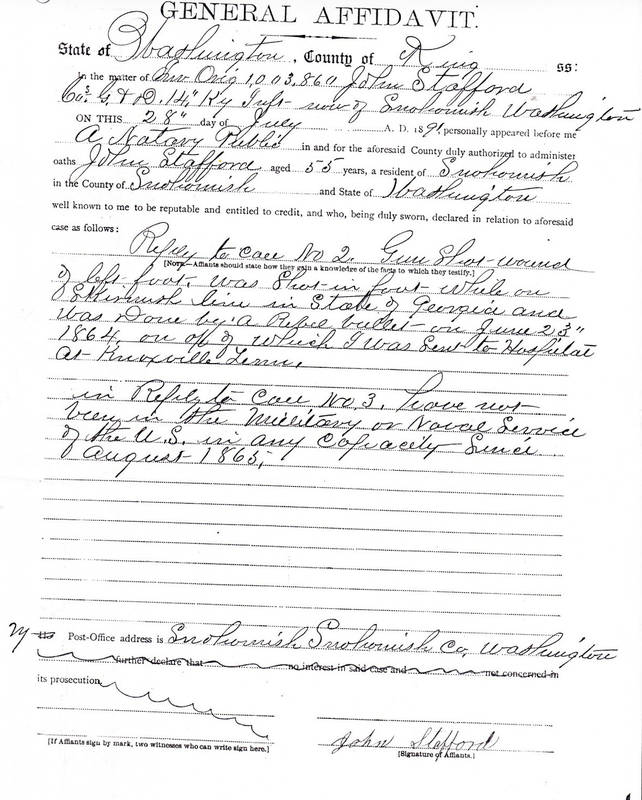 GENERAL AFFIDAVIT.
State of Washington, County of King ss:
In the matter of Inv Orig 1,003,860 John Stafford
Cos. G & D. 14" Ky Inft now of Snohomish Washington
ON THIS 28" day of July A. D. 1891 personally appeared before me
A Notary Public in and for the aforesaid County duly authorized to administer
oaths John Stafford aged 55 years, a resident of Snohomish
in the County of Snohomish and State of Washington
well known to me to be reputable and entitled to credit, and who, being duly sworn, declared in relation to aforesaid
case as follows:
Reply to Call No 2. Gun Shot wound
[NOTE—Affiants should state how they gain a knowledge of the facts to which they testify.]
of left foot. Was Shot in foot while on
Skirmish line in State of Georgia and
was Done by a Rebel bullet on June 23"
1864 on of which I was Sent to Hospital
at Knoxville Tenn.
in Reply to Call No. 3. have not
been in the Military or Naval Service
of the U.S. in any Capacity Since
August 1865,
My Post-Office address is Snohomish Snohomish Co, Washington
further declare that no interest in said case and not concerned in
its prosecution
John Stafford
[If Affiants sign by mark, two witnesses who can write sign here.]
[Signature of Affiants.]